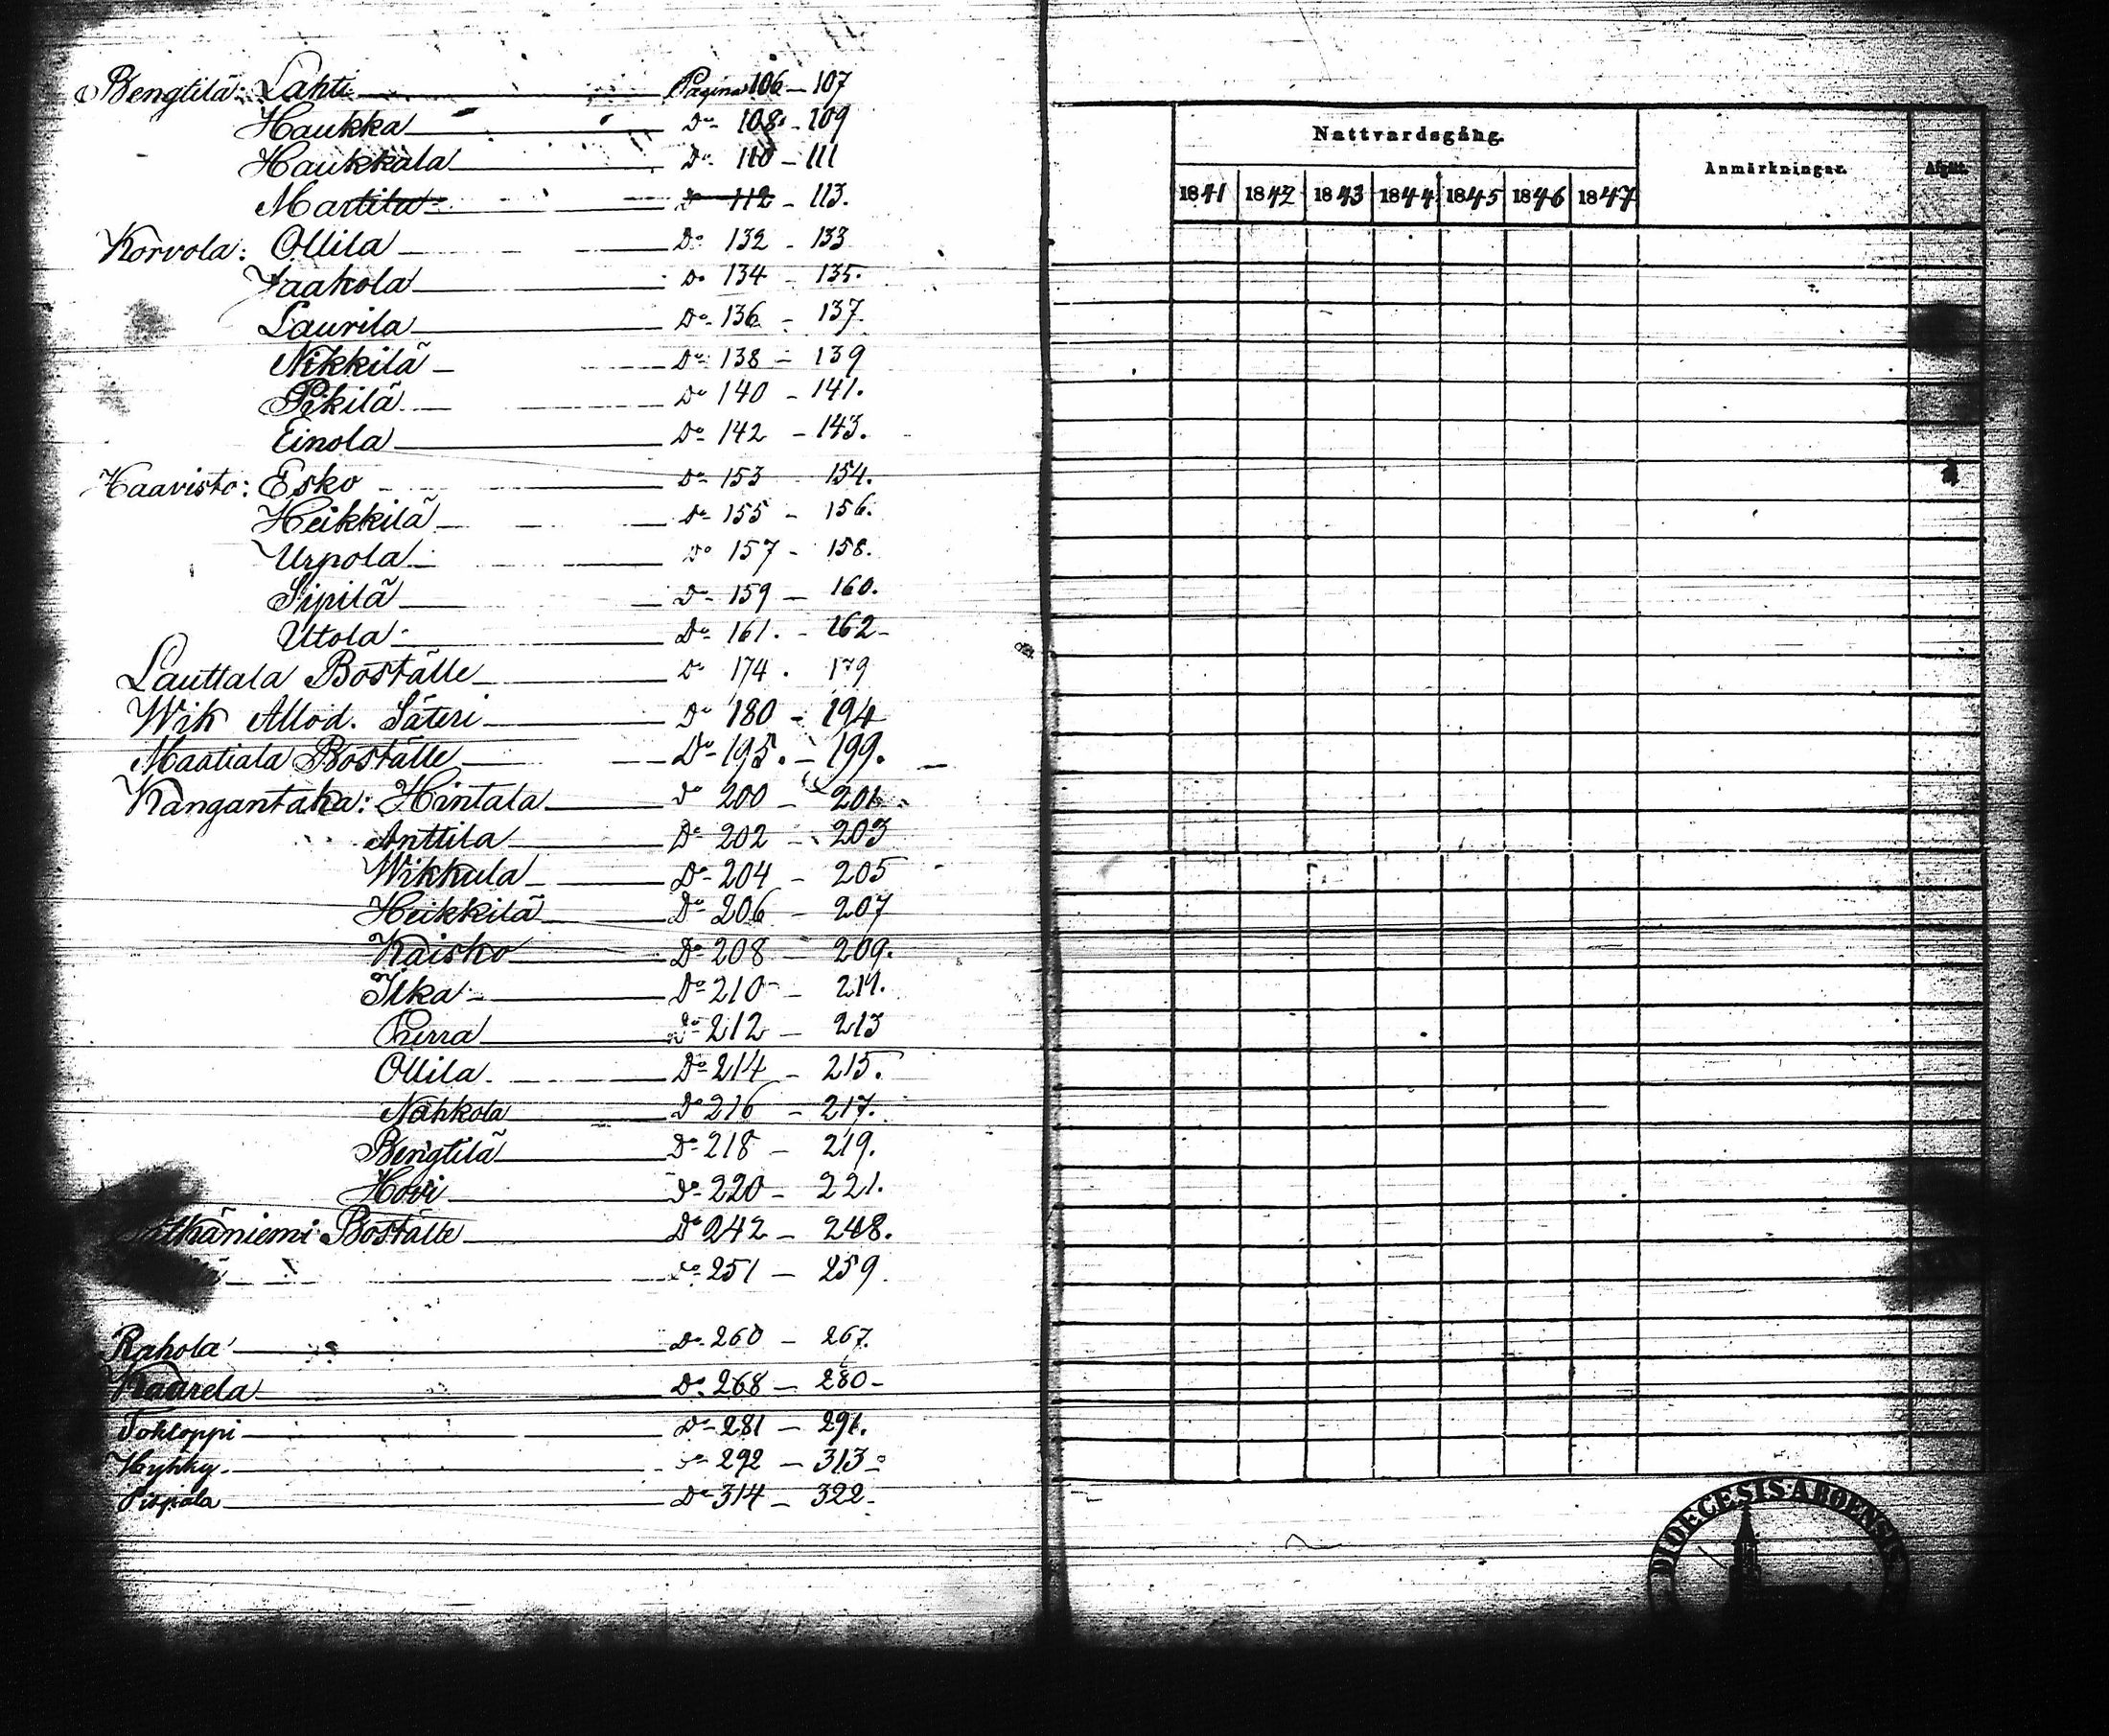 Bengtilä: Lahti Pagina 106 - 107
Haukka Do 108 - 109
Haukkala Do 110 - 111
Martila Do 112 - 113.
Korvola: Ollila Do 132 - 133
Jaakola Do 134 - 135.
Laurila Do 136 - 137.
Nikkilä Do 138 - 139
Pikilä Do 140 - 141.
Einola Do 142 - 143.
Haavisto: Esko Do 153 - 154.
Heikkilä Do 155 - 156.
Urpola Do 157 - 158.
Sipilä Do 159 - 160.
Utola Do 161. - 162
Lauttala Boställe Do 174 - 179
Wik Allod. Säteri Do 180 - 194
Mattiala Boställe Do 195. - 199.
Kangantaka: Hintala Do 200 - 201.
Anttila Do 202 - 203
Wikkula Do 204 - 205
Heikkilä Do 206 - 207
Kaisko Do 208 - 209.
Ilka Do 210 - 211.
Perra Do 212 - 213
Ollila Do 214 - 215.
Nahkola Do 216 - 217.
Bengtilä Do 218 - 219.
Hovi Do 220 - 221.
Boställe Do 242 - 248.
Do 251 - 259.
Rahola Do 260 - 267.
Kaarela Do 268 - 280
Tohloppi Do 281 - 291.
Hyhky Do 292 - 313
Pispala Do 314 - 322
Nattvardsgång.
Anmärkningar.
Afgått.
1841 1842 1843 1844 1845 1846 1847
DIOECESIS ABOENSIS